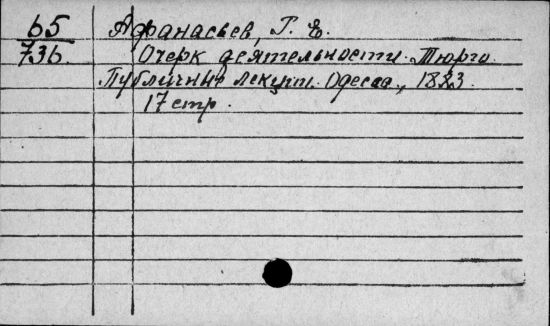 65
736.
Афанасьев, Г. Е.
Очерк деятельности Тюрго.
Публичные лекции. Одесса, 1883.
17 стр.